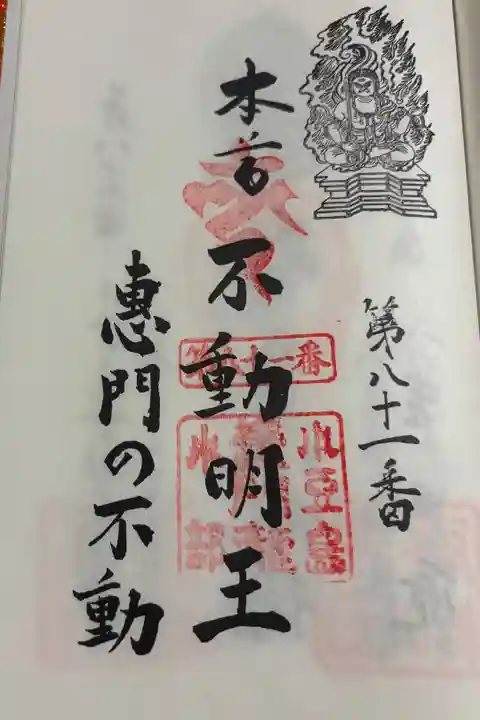 第八十一番
本尊不動明王
第八十一番
小豆島
恵門の不動